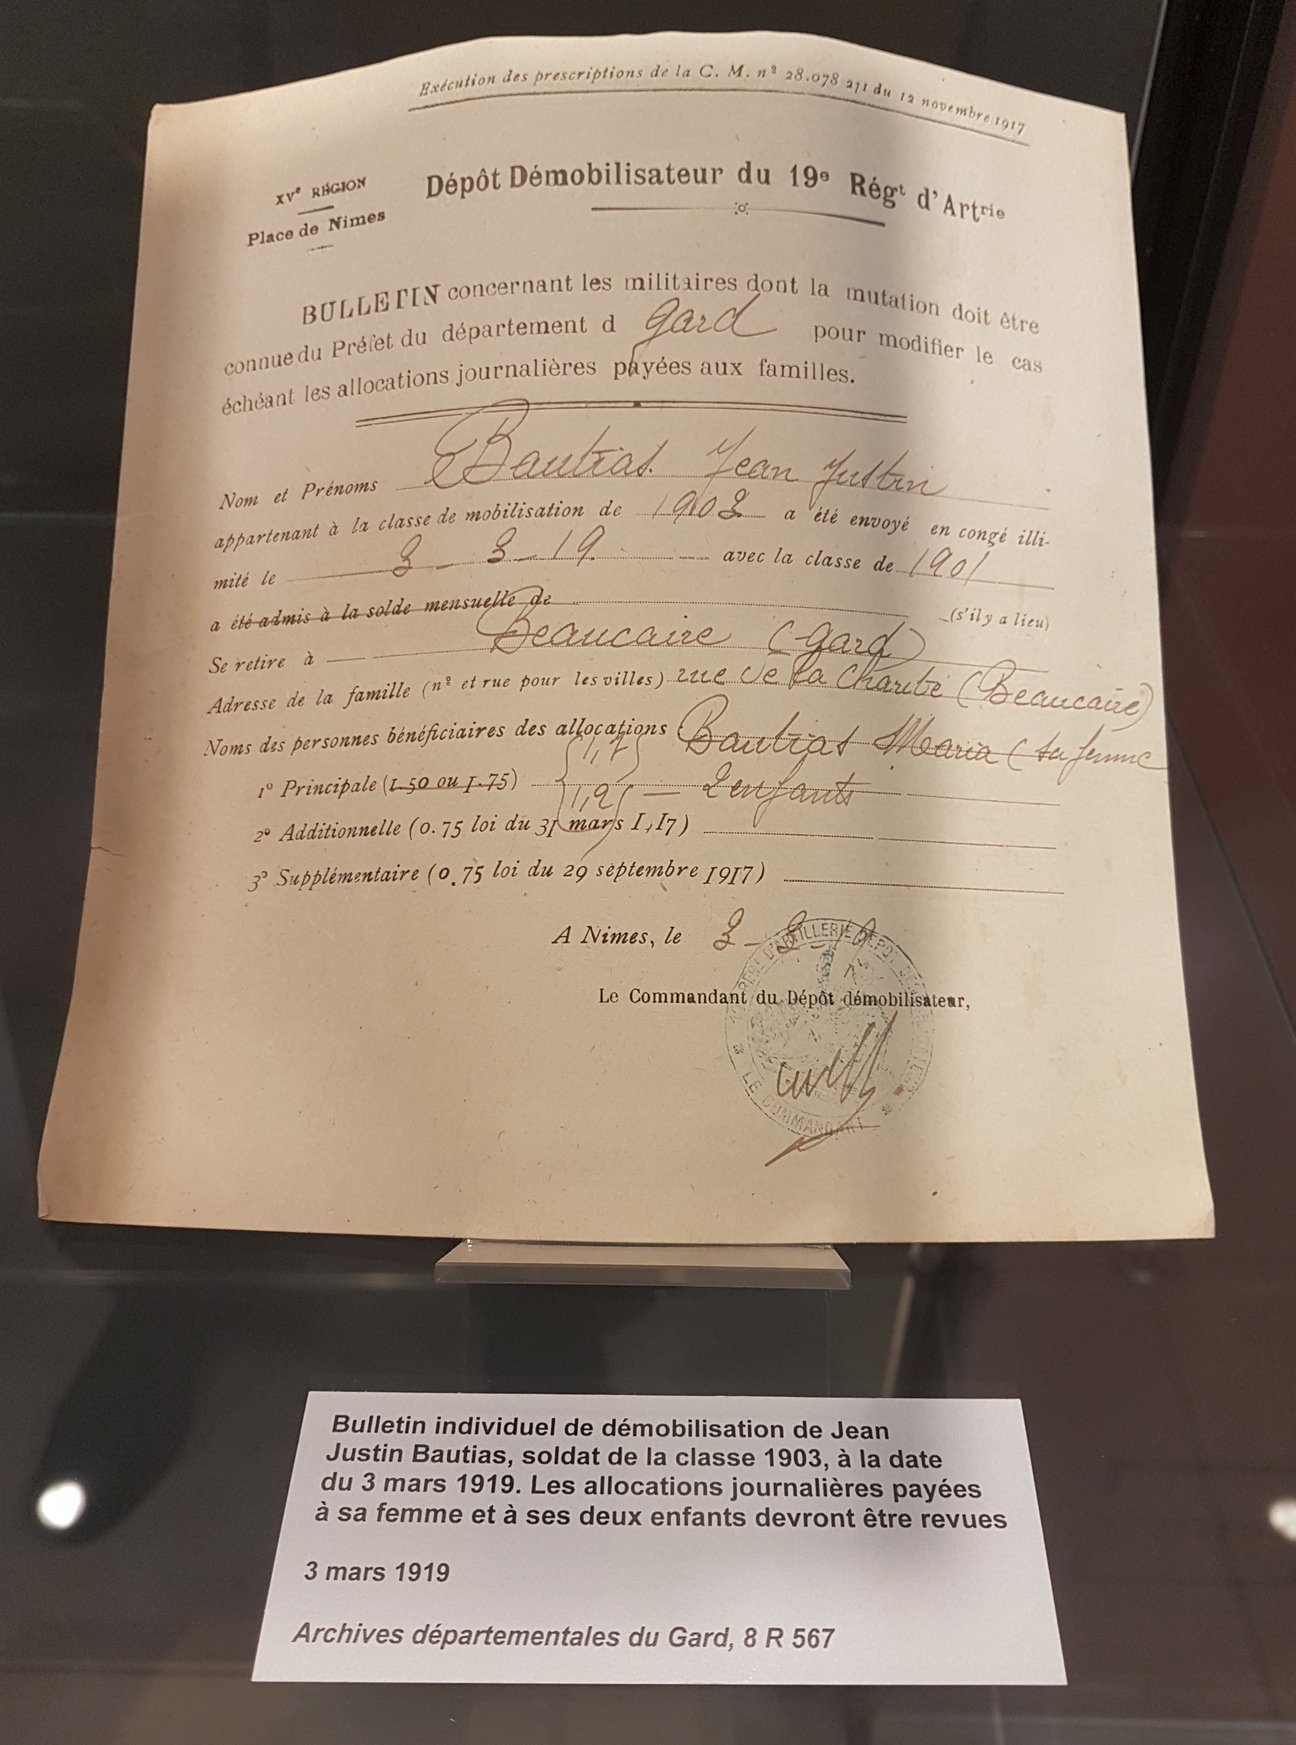 Exécution des prescriptions de la C. M. nº 28.078 2/1 du 12 novembre 1917
XVe RÉGION
Place de Nimes
Dépôt Démobilisateur du 19e Régt d'Artrie
BULLETIN concernant les militaires dont la mutation doit être
connue du Préfet du département d Gard pour modifier le cas
échéant les allocations journalières payées aux familles.
Nom et Prénoms Bautias Jean Justin
appartenant à la classe de mobilisation de 1903 a été envoyé en congé illi-
mité le 3 - 3 - 19 avec la classe de 1901
a été admis à la solde mensuelle de (s'il y a lieu)
Se retire à Beaucaire (Gard)
Adresse de la famille (nº et rue pour les villes) rue de la Charité (Beaucaire)
Noms des personnes bénéficiaires des allocations Bautias Maria (sa femme
1º Principale (1.50 ou 1.75) 2 enfants
2º Additionnelle (0.75 loi du 31 mars 1917)
3º Supplémentaire (0.75 loi du 29 septembre 1917)
A Nimes, le 3 - 3 - 19
Le Commandant du Dépôt démobilisateur,
LE COMMANDANT
Bulletin individuel de démobilisation de Jean
Justin Bautias, soldat de la classe 1903, à la date
du 3 mars 1919. Les allocations journalières payées
à sa femme et à ses deux enfants devront être revues
3 mars 1919
Archives départementales du Gard, 8 R 567